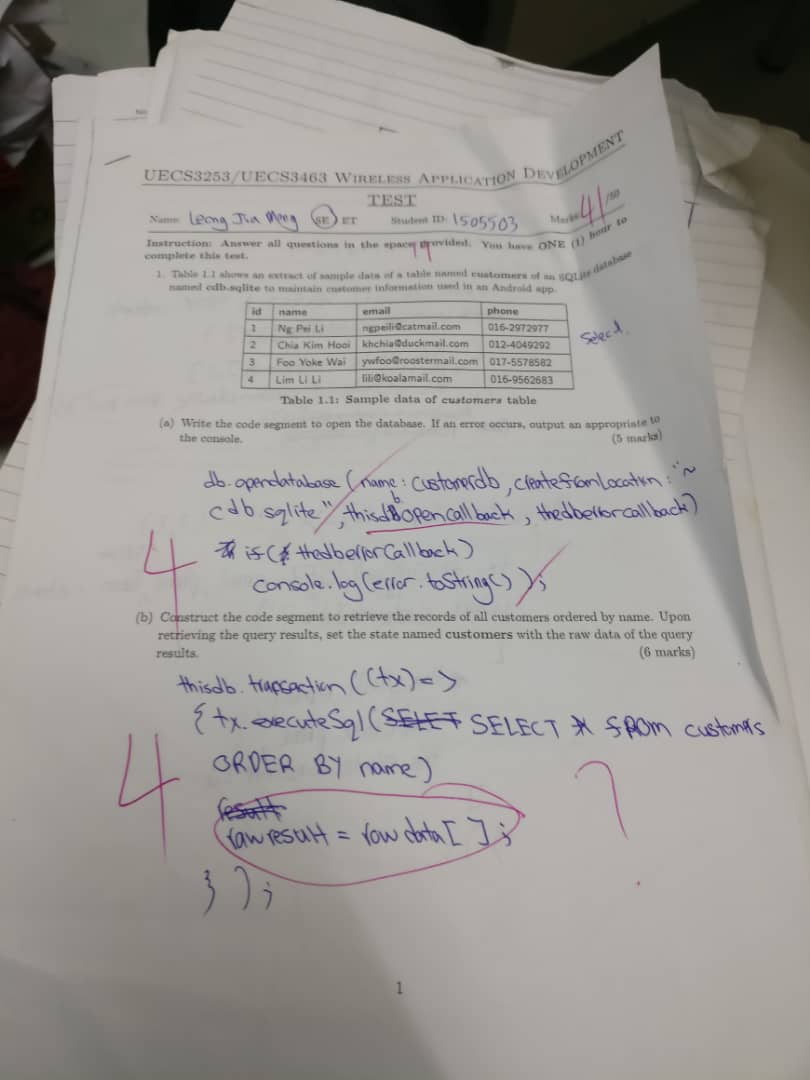 UECS3253/UECS3463 WIRELESS APPLICATION DEVELOPMENT
TEST
Name: Leong Jia Meng SE ET Student ID: 1505503 Marks: 41/50
Instruction: Answer all questions in the space provided. You have ONE (1) hour to
complete this test.
1. Table 1.1 shows an extract of sample data of a table named customers of an SQLite database
named cdb.sqlite to maintain customer information used in an Android app.
id name email phone
1 Ng Pei Li ngpeili@catmail.com 016-2972977
2 Chia Kim Hooi khchia@duckmail.com 012-4049292
3 Foo Yoke Wai ywfoo@roostermail.com 017-5578582
4 Lim Li Li lili@koalamail.com 016-9562683
Select.
Table 1.1: Sample data of customers table
(a) Write the code segment to open the database. If an error occurs, output an appropriate to
the console. (5 marks)
db.opendatabase (name: customerdb, createfromLocation: "~
cdb sqlite", thisdbopencallback, thedberrorcallback)
4
if( thedberrorCallback)
console.log(error.toString());
(b) Construct the code segment to retrieve the records of all customers ordered by name. Upon
retrieving the query results, set the state named customers with the raw data of the query
results. (6 marks)
thisdb.transaction((tx)=>
{tx.executeSql(SELECT * FROM customers
ORDER BY name)
4
?
result
rawresult = row data[ ];
});
1